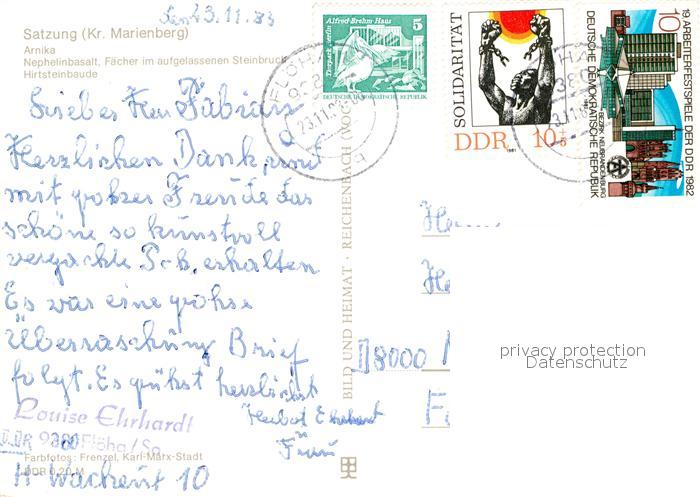 23.11.83
Satzung (Kr. Marienberg)
Arnika
Nephelinbasalt, Fächer im aufgelassenen Steinbruch
Hirtsteinbaude
Alfred-Brehm-Haus
Tierpark Berlin
5
DEUTSCHE DEMOKRATISCHE REPUBLIK
SOLIDARITÄT
DDR 10+5
1981
10
19. ARBEITERFESTSPIELE DER DDR 1982
BEZIRK NEUBRANDENBURG
DEUTSCHE DEMOKRATISCHE REPUBLIK
FLÖHA
23.11.83
Liebes Frau Fabian
Herzlichen Dank, und
mit großer Freude das
schöne so kunstvoll
verpackte erhalten
Es war eine große
Überraschung Brief
folgt. Es grüßt herzlichst
Louise Ehrhardt
DDR 9380 Flöha/Sa.
Farbfotos: Frenzel, Karl-Marx-Stadt
DDR 0,20 M
H. Wachent 10
BILD UND HEIMAT · REICHENBACH (VOGTL)
8000
privacy protection
Datenschutz